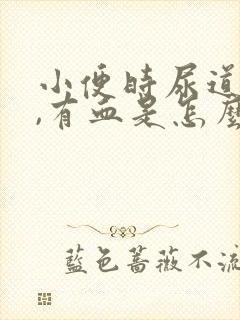 小便時尿道
,有血是怎麼
藍色薔薇不流